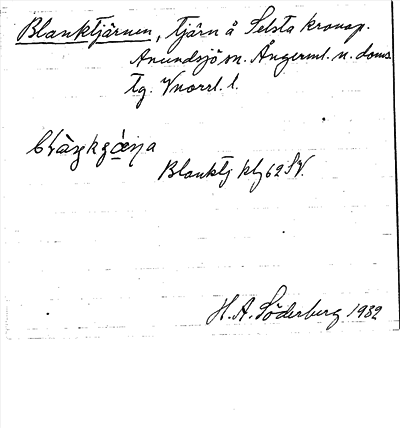 Blanktjärnen, tjärn å Selsta kronop.
Anundsjö sn. Ångerml. n. doms
tg. Vnorrl. l.
Blanktj kbl 62 SV.
H. A. Söderberg 1932